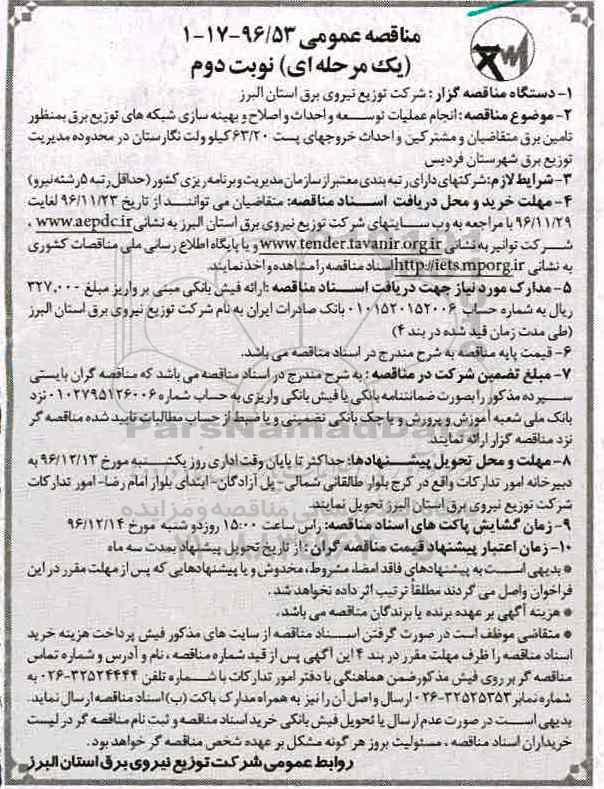 مناقصه عمومی ۹۶/۵۳-۱۷-۱
(یک مرحله ای) نوبت دوم
۱- دستگاه مناقصه گزار: شرکت توزیع نیروی برق استان البرز
۲-موضوع مناقصه: انجام عملیات توسعه و احداث و اصلاح و بهینه سازی شبکه های توزیع برق بمنظور
تامین برق متقاضیان و مشترکین و احداث خروجهای پست ۶۳/۲۰ کیلو ولت نگارستان در محدوده مدیریت
توزیع برق شهرستان فردیس
۳-شرایط لازم: شرکتهای دارای رتبه بندی معتبر از سازمان مدیریت و برنامه ریزی کشور (حداقل رتبه ۵ رشته نیرو)
۴- مهلت خرید و محل دریافت اسناد مناقصه: متقاضیان می توانند از تاریخ ۹۶/۱۱/۲۳ لغایت
۹۶/۱۱/۲۹ با مراجعه به وب سایتهای شرکت توزیع نیروی برق استان البرز به نشانی www.aepdc.ir ،
شرکت توانیر به نشانی www.tender.tavanir.org.ir و یا پایگاه اطلاع رسانی ملی مناقصات کشوری
به نشانی http://iets.mporg.ir اسناد مناقصه را مشاهده و اخذ نمایند.
۵- مدارک مورد نیاز جهت دریافت اسناد مناقصه: ارائه فیش بانکی مبنی بر واریز مبلغ ۳۲۷،۰۰۰
ریال به شماره حساب ۰۱۰۱۵۲۰۱۵۲۰۰۶ بانک صادرات ایران به نام شرکت توزیع نیروی برق استان البرز
(طی مدت زمان قید شده در بند ۴)
۶- قیمت پایه مناقصه به شرح مندرج در اسناد مناقصه می باشد.
۷- مبلغ تضمین شرکت در مناقصه: به شرح مندرج در اسناد مناقصه می باشد که مناقصه گران بایستی
سپرده مذکور را بصورت ضمانتنامه بانکی یا فیش بانکی واریزی به حساب شماره ۰۱۰۲۷۹۵۱۲۶۰۰۶ نزد
بانک ملی شعبه آموزش و پرورش و یا چک بانکی تضمینی و یا ضبط از حساب مطالبات تایید شده مناقصه گر
نزد مناقصه گزار ارائه نمایند.
۸- مهلت و محل تحویل پیشنهادها: حداکثر تا پایان وقت اداری روز یکشنبه مورخ ۹۶/۱۲/۱۳ به
دبیرخانه امور تدارکات واقع در کرج بلوار طالقانی شمالی- پل آزادگان- ابتدای بلوار امام رضا- امور تدارکات
شرکت توزیع نیروی برق استان البرز تحویل نمایند.
۹- زمان گشایش پاکت های اسناد مناقصه: راس ساعت ۱۵:۰۰ روز دو شنبه مورخ ۹۶/۱۲/۱۴
۱۰- زمان اعتبار پیشنهاد قیمت مناقصه گران: از تاریخ تحویل پیشنهاد بمدت سه ماه
* بدیهی است به پیشنهادهای فاقد امضاء، مشروط، مخدوش و یا پیشنهادهایی که پس از مهلت مقرر در این
فراخوان واصل می گردند مطلقاً ترتیب اثر داده نخواهد شد.
* هزینه آگهی بر عهده برنده یا برندگان مناقصه می باشد.
* متقاضی موظف است در صورت گرفتن اسناد مناقصه از سایت های مذکور فیش پرداخت هزینه خرید
اسناد مناقصه را ظرف مهلت مقرر در بند ۴ این آگهی پس از قید شماره مناقصه ، نام و آدرس و شماره تماس
مناقصه گر بر روی فیش مذکور ضمن هماهنگی با دفتر امور تدارکات با شماره تلفن ۳۲۵۲۴۴۴۴-۰۲۶ به
شماره نمابر ۳۲۵۲۵۳۵۳-۰۲۶ ارسال و اصل آن را نیز به همراه مدارک پاکت (ب) اسناد مناقصه ارسال نماید.
بدیهی است در صورت عدم ارسال یا تحویل فیش بانکی خرید اسناد مناقصه و ثبت نام مناقصه گر در لیست
خریداران اسناد مناقصه ، مسئولیت بروز هر گونه مشکل بر عهده شخص مناقصه گر خواهد بود.
روابط عمومی شرکت توزیع نیروی برق استان البرز